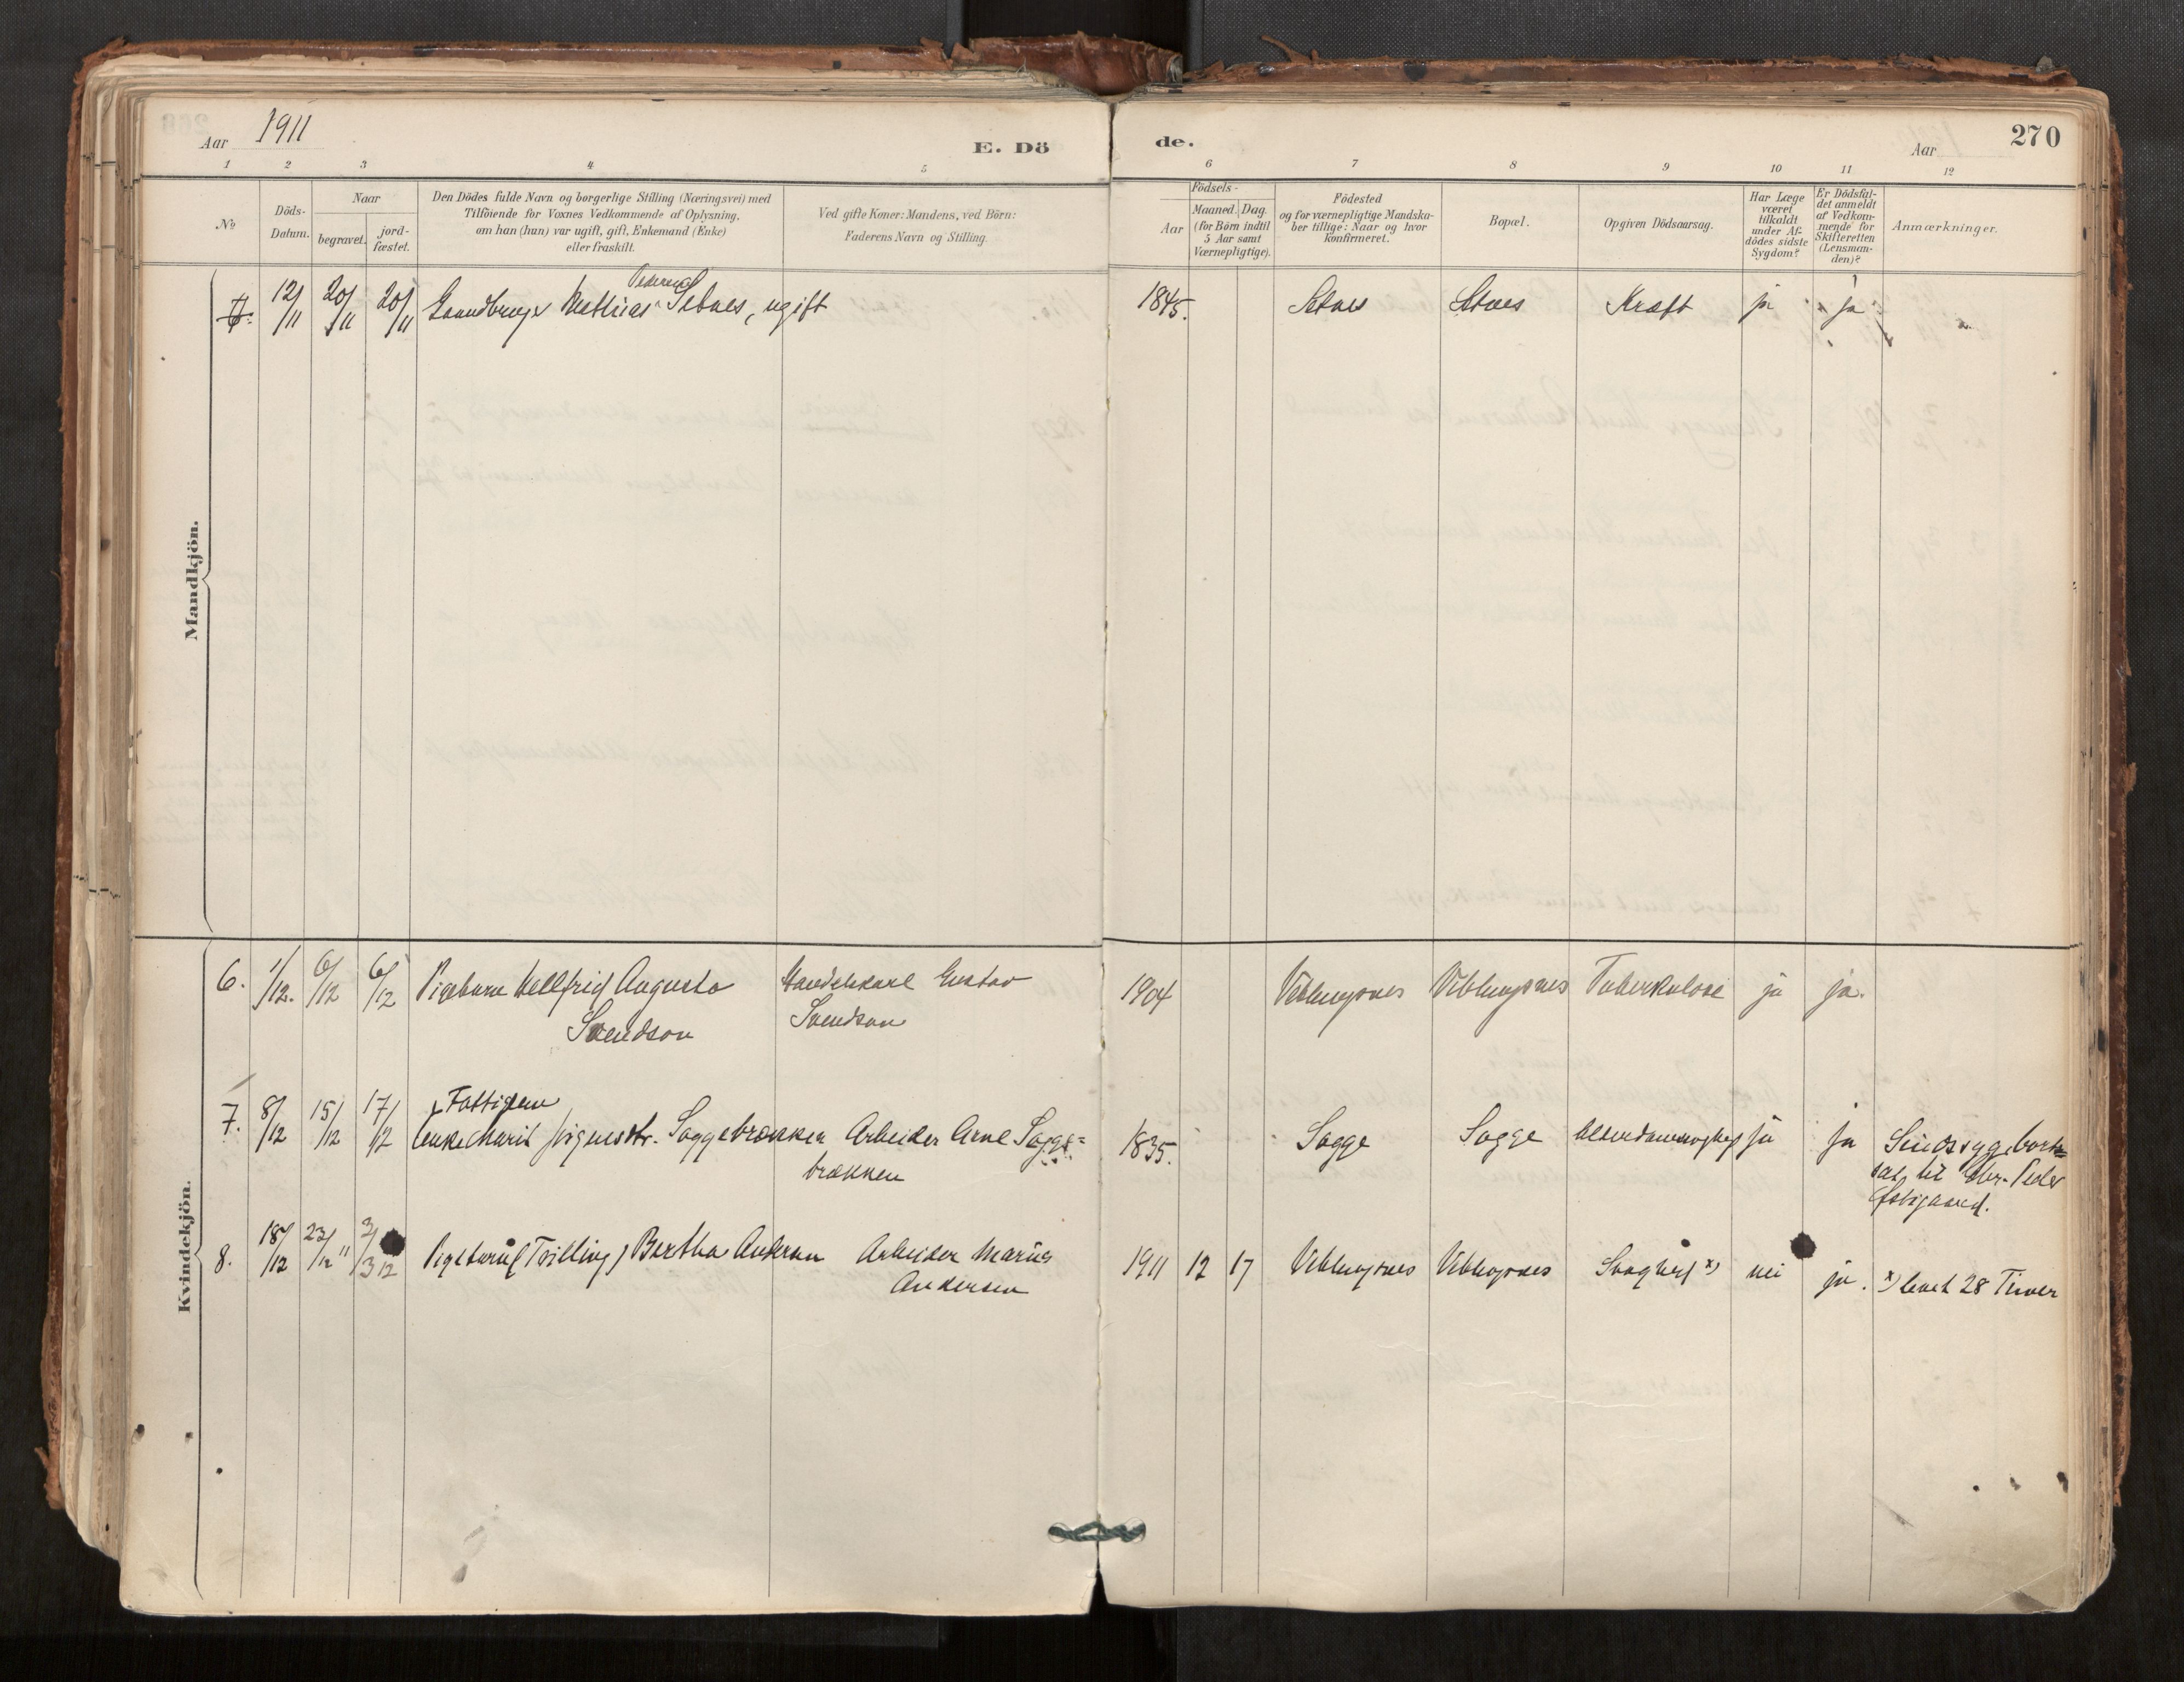 Aar 1911
E. Dö
de.
Aar
270
1 2 3 4 5 6 7 8 9 10 11 12
No
Döds-Datum.
Naar
begravet.
jord-fæstet.
Den Dödes fulde Navn og borgerlige Stilling (Næringsvei) med
Tilföiende for Voxnes Vedkommende af Oplysning,
om han (hun) var ugift, gift, Enkemand (Enke)
eller fraskilt.
Ved gifte Koner: Mandens, ved Börn:
Faderens Navn og Stilling.
Födsels-
Aar
Maaned. Dag.
(for Börn indtil
5 Aar samt
Værnepligtige).
Födested
og for værnepligtige Mandska-
ber tillige: Naar og hvor
konfirmeret.
Bopæl.
Opgiven Dödsaarsag.
Har Læge
været
tilkaldt
under Af-
dödes sidste
Sygdom?
Er Dödsfal-
det anmeldt
af Vedkom-
mende for
Skifteretten
(Lensman-
den)?
Anmærkninger.
Mandkjön.
Pedersen
12/11 20/11 20/11 Gaardbruger Mathias Setnes, ugift 1845. Setnes Setnes Kræft ja ja
Kvindekjön.
6. 1/12. 6/12 6/12 Pigebarn Hellfrid Augusta Handelskarl Gustav 1904 Veblungsnes Veblungsnes Tuberkulose ja ja.
Svendson Svendson
Fattiglem
7. 8/12 15/12 17/12 Enke Marit Jörgensdtr. Soggebrækken Arbeider Arne Sogge= 1835. Sogge Sogge Alderdomssvaghed ja ja Sindssyg, bort=
brækken
sat til
Peder
8. 18/12 23/12 11 3/3 12 Pigebarn (Tvilling) Bertha Andersen Arbeider Marius 1911 12 17 Veblungsnes Veblungsnes Svaghed x) nei ja. x) levet 28 Timer
Andersen